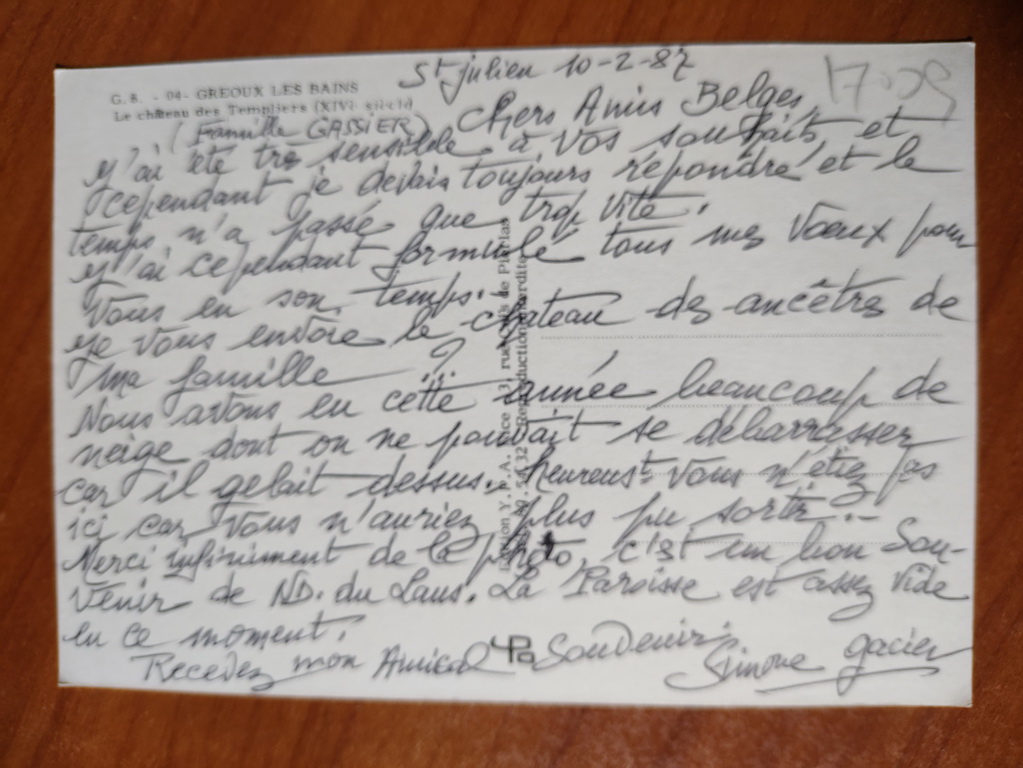 St julien 10-2-87
17.09
G. B. - 04- GREOUX LES BAINS
Le château des Templiers (XIVe siècle)
(Famille GASSIER) Chers Amis Belges,
J'ai été très sensible à vos souhaits et
cependant je devais toujours répondre et le
temps n'a passé que trop vite.
J'ai cependant formulé tous mes vœux pour
vous en son temps.
Je vous envoie le château des ancêtres de
ma famille ?
Nous avons eu cette année beaucoup de
neige dont on ne pouvait se débarrasser
car il gelait dessus. heureust vous n'étiez pas
ici car vous n'auriez plus pu sortir..-
Merci infiniment de la photo, c'est un bon Sou-
venir de ND. du Laus. La Paroisse est assez vide
en ce moment.
Recevez mon Amical Souvenir.
Simone gacier